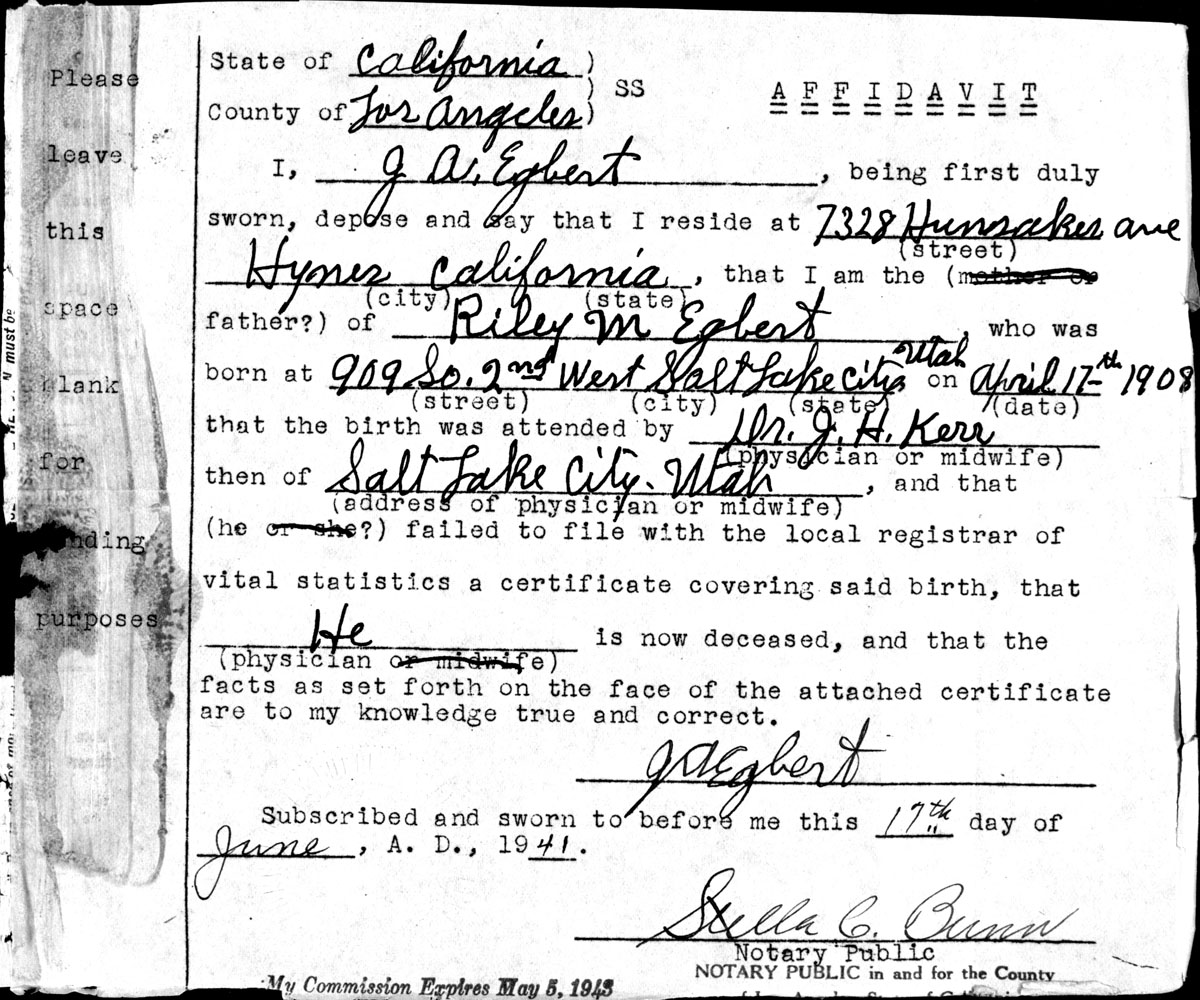 Please
leave
this
space
blank
for
purposes
must be
State of California )
) SS
County of Los Angeles )
AFFIDAVIT
I, J A. Egbert, being first duly
sworn, depose and say that I reside at 7328 Hunsaker ave
(street)
Hynes California, that I am the (mother or
(city) (state)
father?) of Riley M Egbert, who was
born at 909 So. 2nd West Salt Lake City Utah on April 17th 1908
(street) (city) (state) (date)
that the birth was attended by Dr. J. H. Kerr
(physician or midwife)
then of Salt Lake City. Utah, and that
(address of physician or midwife)
(he or she?) failed to file with the local registrar of
vital statistics a certificate covering said birth, that
He is now deceased, and that the
(physician or midwife)
facts as set forth on the face of the attached certificate
are to my knowledge true and correct.
J A Egbert
Subscribed and sworn to before me this 17th day of
June, A. D., 1941.
Stella C. Bunn
Notary Public
NOTARY PUBLIC in and for the County
My Commission Expires May 5, 1943